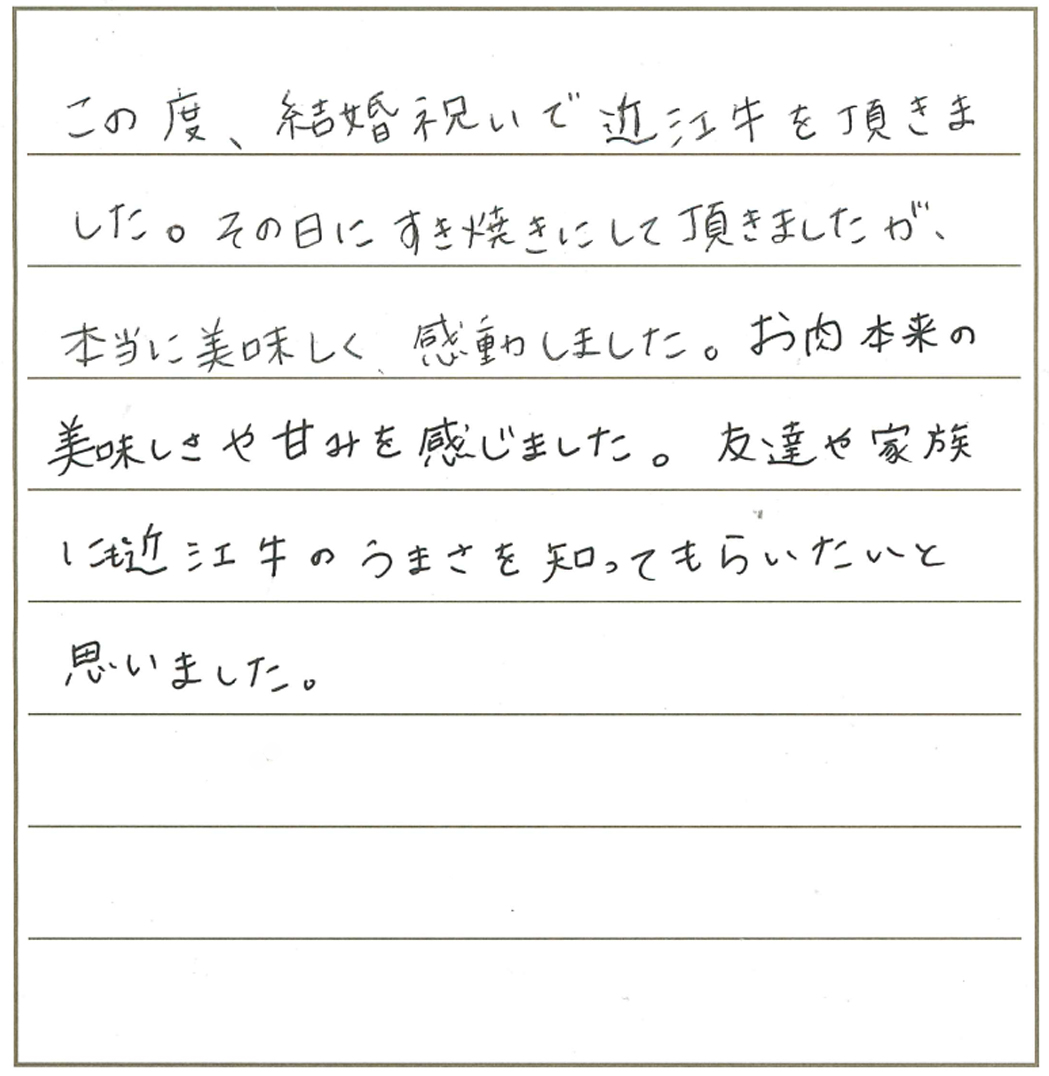 この度、結婚祝いで近江牛を頂きま
した。その日にすき焼きにして頂きましたが、
本当に美味しく、感動しました。お肉本来の
美味しさや甘みを感じました。友達や家族
にも近江牛のうまさを知ってもらいたいと
思いました。